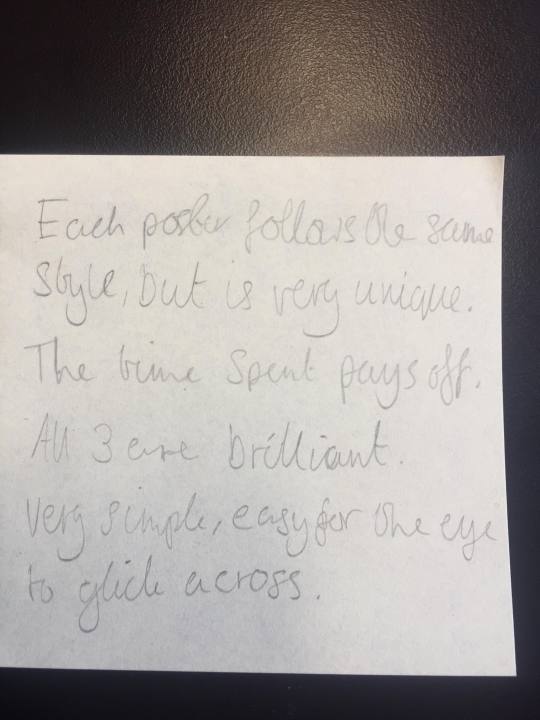 Each poster follows the same
style, but is very unique.
The time spent pays off.
All 3 are brilliant.
Very simple, easy for the eye
to glide across.